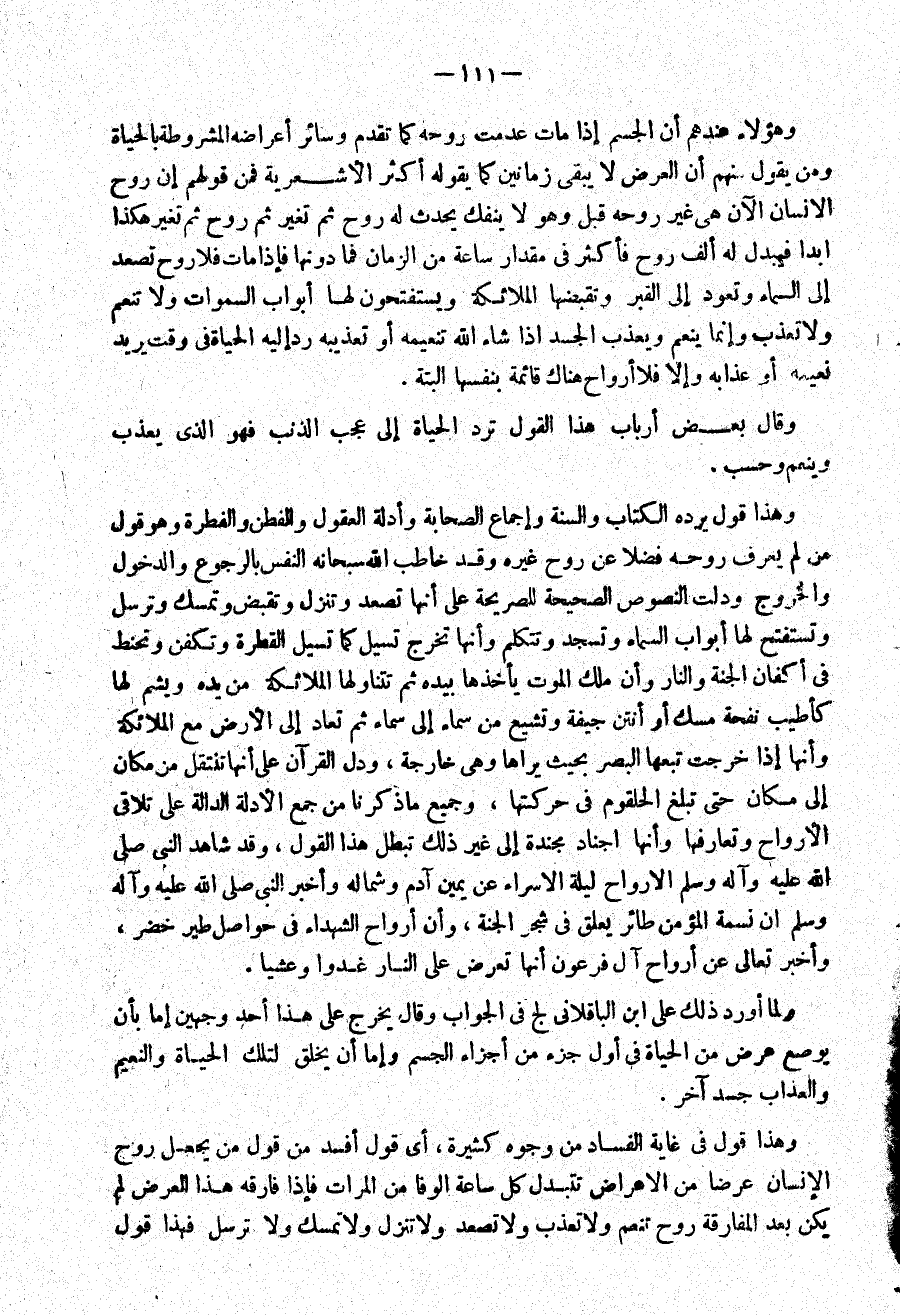 — ١١١ —
وهؤلاء عندهم أن الجسم إذا مات عدمت روحه كما تقدم وسائر أعراضه المشروطة بالحياة
ومن يقول منهم أن العرض لا يبقى زمانين كما يقوله أكثر الأشعرية فمن قولهم إن روح
الانسان الآن هى غير روحه قبل وهو لا ينفك يحدث له روح ثم تغير ثم روح ثم تغير هكذا
ابدا فيبدل له ألف روح فأكثر فى مقدار ساعة من الزمان فما دونها فإذا مات فلا روح تصعد
إلى السماء وتعود إلى القبر وتقبضها الملائكة ويستفتحون لها أبواب السموات ولا تنعم
ولا تعذب وإنما ينعم ويعذب الجسد اذا شاء الله تنعيمه أو تعذيبه رد إليه الحياة فى وقت يريد
نعيمه أو عذابه وإلا فلا أرواح هناك قائمة بنفسها البتة .
وقال بعض أرباب هذا القول ترد الحياة إلى عجب الذنب فهو الذى يعذب
وينعم وحسب .
وهذا قول يرده الكتاب والسنة وإجماع الصحابة وأدلة العقول والفطن والفطرة وهو قول
من لم يعرف روحه فضلا عن روح غيره وقد خاطب الله سبحانه النفس بالرجوع والدخول
والخروج ودلت النصوص الصحيحة الصريحة على أنها تصعد وتنزل وتقبض وتمسك وترسل
وتستفتح لها أبواب السماء وتسجد وتتكلم وأنها تخرج تسيل كما تسيل القطرة وتكفن وتحنط
فى أكفان الجنة والنار وأن ملك الموت يأخذها بيده ثم تتناولها الملائكة من يده ويشم لها
كأطيب نفحة مسك أو أنتن جيفة وتشيع من سماء إلى سماء ثم تعاد إلى الأرض مع الملائكة
وأنها إذا خرجت تبعها البصر بحيث يراها وهى خارجة ، ودل القرآن على أنها تنتقل من مكان
إلى مكان حتى تبلغ الحلقوم فى حركتها ، وجميع ما ذكرنا من جمع الأدلة الدالة على تلاقى
الأرواح وتعارفها وأنها اجناد مجندة إلى غير ذلك تبطل هذا القول ، وقد شاهد النبى صلى
الله عليه وآله وسلم الارواح ليلة الاسراء عن يمين آدم وشماله وأخبر النبى صلى الله عليه وآله
وسلم ان نسمة المؤمن طائر يعلق فى شجر الجنة ، وأن أرواح الشهداء فى حواصل طير خضر ،
وأخبر تعالى عن أرواح آل فرعون أنها تعرض على النار غدوا وعشيا .
ولما أورد ذلك على ابن الباقلانى لج فى الجواب وقال يخرج على هذا أحد وجهين إما بأن
يوضع عرض من الحياة فى أول جزء من أجزاء الجسم وإما أن يخلق لتلك الحياة والنعيم
والعذاب جسد آخر .
وهذا قول فى غاية الفساد من وجوه كثيرة ، أى قول أفسد من قول من يجعل روح
الإنسان عرضا من الاعراض تتبدل كل ساعة الوفا من المرات فإذا فارقه هذا العرض لم
يكن بعد المفارقة روح تنعم ولا تعذب ولا تصعد ولا تنزل ولا تمسك ولا ترسل فهذا قول